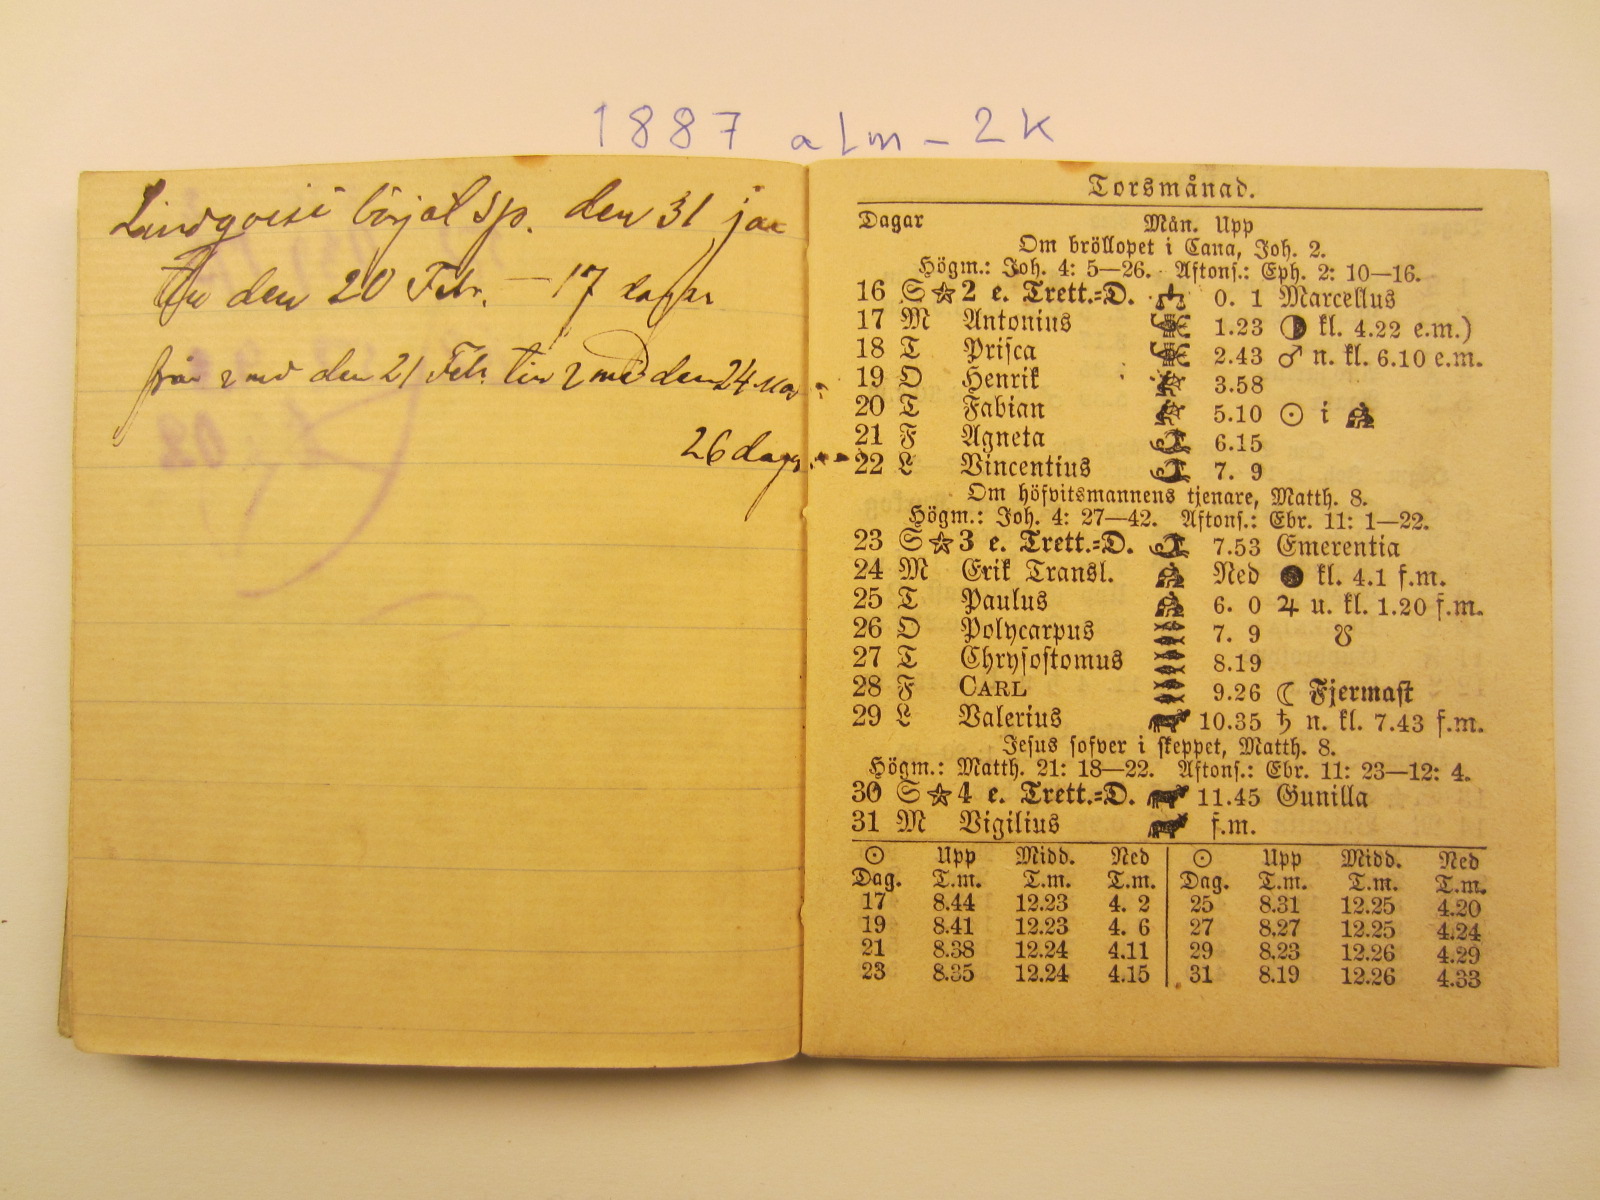 1887 alm - 2K
Lindqvist börjat sp. den 31 jan
Till den 20 Febr. — 17 dagar
från 2 md den 21 Febr. till 2 md den 24 Mar
26 dagar
Torsmånad.
Dagar Mån. Upp
Om bröllopet i Cana, Joh. 2.
Högm.: Joh. 4: 5—26. Aftons.: Eph. 2: 10—16.
16 S ☆ 2 e. Trett.=D. 0. 1 Marcellus
17 M Antonius 1.23 ◑ kl. 4.22 e.m.)
18 T Prisca 2.43 ♂ n. kl. 6.10 e.m.
19 O Henrik 3.58
20 T Fabian 5.10 ☉ i
21 F Agneta 6.15
22 L Vincentius 7. 9
Om höfvitsmannens tjenare, Matth. 8.
Högm.: Joh. 4: 27—42. Aftons.: Ebr. 11: 1—22.
23 S ☆ 3 e. Trett.=D. 7.53 Emerentia
24 M Erik Transl. Ned ● kl. 4.1 f.m.
25 T Paulus 6. 0 ♃ u. kl. 1.20 f.m.
26 O Polycarpus 7. 9 ☋
27 T Chrysostomus 8.19
28 F CARL 9.26 ☾ Fjermast
29 L Valerius 10.35 ♄ n. kl. 7.43 f.m.
Jesus sofver i skeppet, Matth. 8.
Högm.: Matth. 21: 18—22. Aftons.: Ebr. 11: 23—12: 4.
30 S ☆ 4 e. Trett.=D. 11.45 Gunilla
31 M Vigilius f.m.
☉ Upp Midd. Ned ☉ Upp Midd. Ned
Dag. T.m. T.m. T.m. Dag. T.m. T.m. T.m.
17 8.44 12.23 4. 2 25 8.31 12.25 4.20
19 8.41 12.23 4. 6 27 8.27 12.25 4.24
21 8.38 12.24 4.11 29 8.23 12.26 4.29
23 8.35 12.24 4.15 31 8.19 12.26 4.33